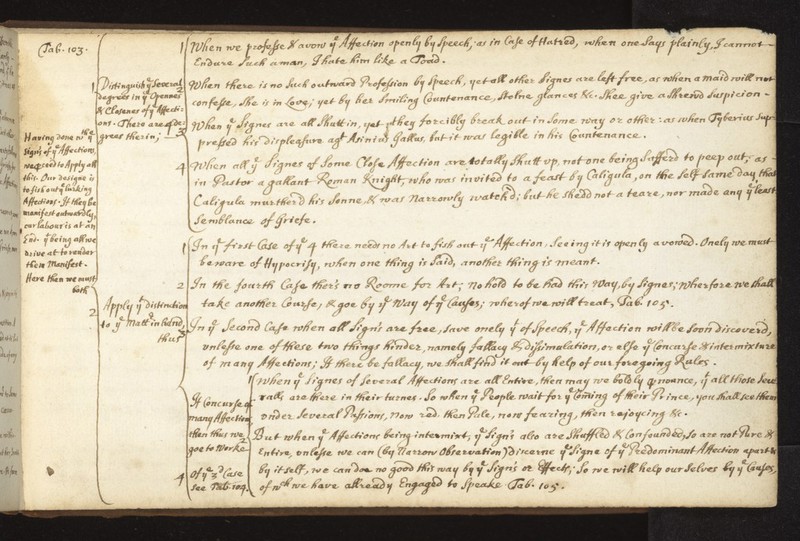 Tab. 103.
Having done wth ye
Signs of ye Affections,
we proceed to Apply all
this. Our designe is
to fish out ye lurking
Affections. If they be
manifest outwardly,
our labour is at an
End. ye being all we
drive at to render
them Manifest.
Here then we must
both
1 Distinguish ye Several
degrees in ye Openness
& Closeness of ye Affecti:
ons. There are 4 de:
grees therein;
1 When we professe & avow ye Affection openly by Speech; as in Case of Hatred, when one Says plainly, I cannot
Endure Such a man, I hate him like a Toad.
2 When there is no Such outward Profession by Speech, yet all other Signes are left free, as when a maid will not
confesse, She is in Love; yet by her Smiling Countenance, Stolne glances &c. Shee give a Shrewd Suspicion
3 When ye Signes are all Shutt in, yet they forcibly break out in Some way or other: as when Tyberius Sup
pressed his displeasure agt Asinius Gallus, but it was legible in his Countenance.
4 When all ye Signes of Some Close Affection are totally Shutt up, not one being Sufferd to peep out; as
in Pastor a gallant Roman Knight, who was invited to a feast by Caligula, on the Self Same day that
Caligula murther'd his Sonne, & was Narrowly watch'd; but he shedd not a teare, nor made any ye least
Semblance of Griefe.
2 Apply ye distinction
to ye Matter in hand,
thus
1 In ye first Case of ye 4 there needs no Art to fish out ye Affection, Seeing it is openly avowed. Onely we must
beware of Hypocrisy, when one thing is Said, another thing is meant.
2 In the fourth Case ther's no Roome for Art, no hold to be had this Way, by Signes; Wherfore we Shall
take another Course, & goe by ye Way of ye Causes; wherof we will treat, Tab. 105.
3 In ye Second Case when all Signs are free, save onely ye of Speech, ye Affection will be Soon discoverd,
unlesse one of these two things hinder, namely fallacy & dissimulation, or else ye Concurse & intermixture
of many Affections; If there be fallacy, we shall find it out by help of our foregoing Rules.
If Concurse of
many Affections
then thus we
goe to Worke
1 When ye Signes of Several Affections are all Entire, then may we boldly pronounce, ye all those Seve
ralls are there in their turnes. So when ye People wait for ye Coming of their Prince, you shall see them
under Several Passions, Now red, then Pale, now fearing, then rejoycing &c.
2 But when ye Affections being intermixt, ye Signs also are Shuffled & Confounded, So are not Pure &
Entire, unlesse we can (by Narrow Observation) discerne ye Signe of ye Predominant Affection apart &
by it self, we can doe no good this way by ye Signs or Effects; So we will help our Selves by ye Causes,
of wch we have allready Engaged to Speake Tab. 105.
4 Of ye 3d Case
see Tab. 104.